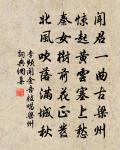 聞君一曲古梁州
驚起黃雲塞上愁
秦女樹前花正發
北風吹落滿城秋
李頻聞金吾妓唱梁州
詞典網集